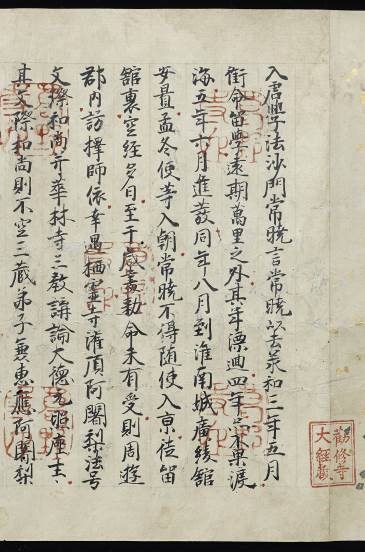 入唐學法沙門常曉言常曉以去承和三年五月
銜命留學遠期萬里之外其年漂廻四年亦不果渡
海五年六月進發同年八月到淮南城廣綾舘
安置孟冬使等入朝常曉不得随使入京徒留
舘裏空經多日至于歳盡勅命未有受則周遊
郡内訪擇師依幸遇栖靈寺灌頂阿闍梨法号
文㻮和尚并華林寺三教講論大德元照座主
其文㻮和尚則不空三藏弟子無惠應阿闍梨
勸修寺
大経蔵